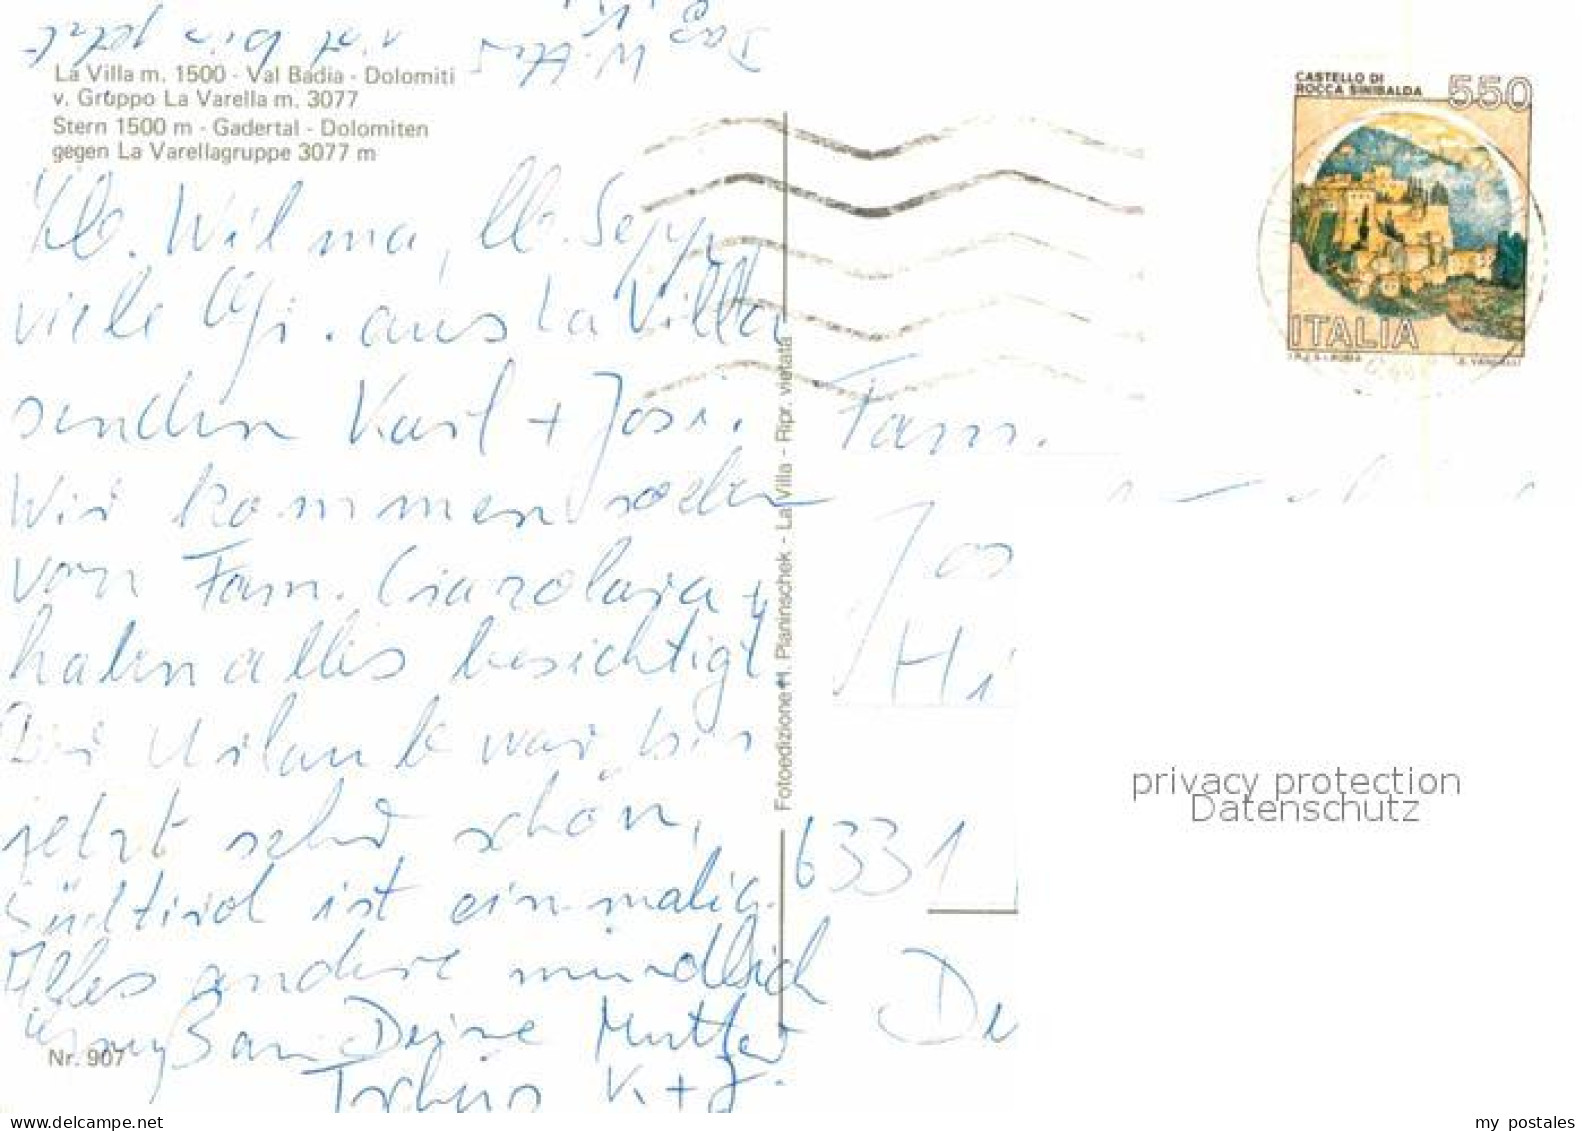 La Villa m. 1500 - Val Badia - Dolomiti
v. Gruppo La Varella m. 3077
Stern 1500 m - Gadertal - Dolomiten
gegen La Varellagruppe 3077 m
CASTELLO DI
ROCCA SINIBALDA
550
ITALIA
Lb. Wilma, lb. Sepp,
viele Gr. aus La Villa
senden Karl + Josi.
Wir kommen soeben
von Fam. +
haben alles besichtigt
Der Urlaub war bis
jetzt sehr schön,
Südtirol ist einmalig.
Alles andere mündlich
Gruß an Deine Mutter
Tschüs K + J.
Das Wetter ist bis jetzt
Nr. 907
Fotoedizione H. Planinschek - La Villa - Ripr. vietata
Fam.
Jos
Hi
6331
De
privacy protection
Datenschutz
www.delcampe.net
my_postales